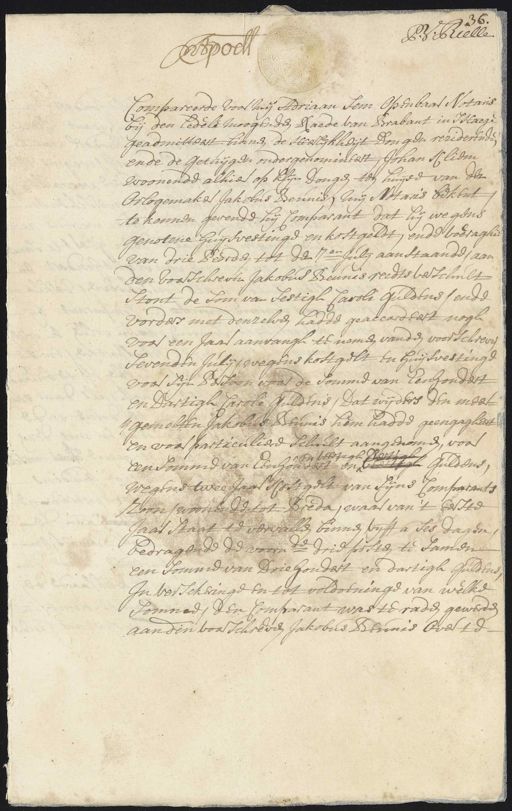 36.
Compareerde voor mij Adriaan Sem Openbaar Notaris
bij den Edele Moogende Raede van Brabant in 's Hage
geadmitteert binne de Heerlijkheijt Dongen residerende,
ende de getuijgen ondergenomineert, Johan
woonende alhier op Klijn Donge, ten huijse van den
Orlogemaker Jakobus Beunis, mij Notaris bekent,
te kennen gevende hij Comparant dat hij wegens
genotene huijsvestinge en kostgeldt, ende
van drie Pierde, tot de 7en Julij aanstaande, aan
den voorschreve Jakobus Beunis reets verschult
stont de Som van Sestigh Carolj Guldens, ende
vorders met denzelve hadde geacordeert nogh
voor een Jaar aanvangh te neme van de voorschreve
sevenden Julij, wegens kostgelt en huijsvestinge
voor sijn Persoon voor de Somme van een hondert
en dartigh Carolj Guldens, dat wijders den meer
gemelten Jakobus Beunis hem hadde geengageert
en voor particuliere Schult aangenome, voor
een Somme van een hondert en Guldens,
wegens twee Jaar kostgelt van sijne Comparants
Zoon, woonende tot Breda, waar van 't eerste
Jaar staat te vervalle binne vijff a ses dagen,
bedragende de voorn. drie poste te Samen
een Somme van drie hondert en dartigh Guldens,
In verschijninge en tot voldoeninge van welke
Somme, den Comparant was te rade geworde
aan den voorschreve Jakobus Beunis over te